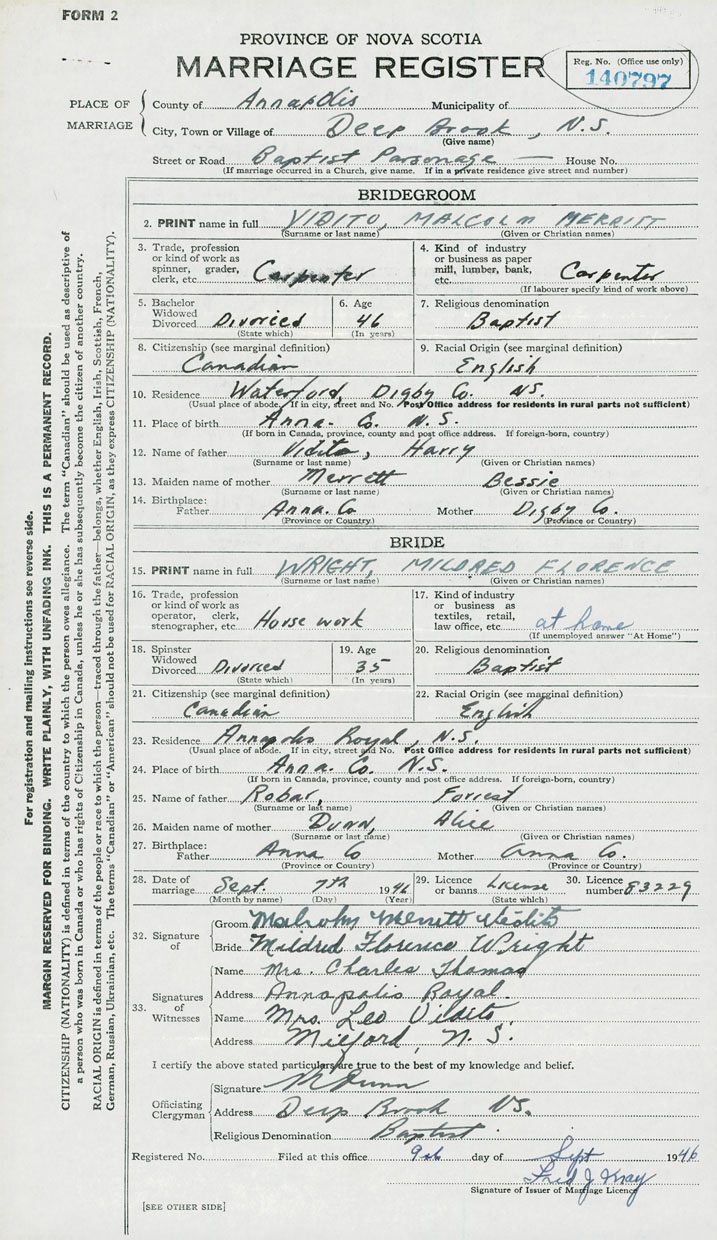 FORM 2
PROVINCE OF NOVA SCOTIA
MARRIAGE REGISTER
Reg. No. (Office use only)
140797
PLACE OF MARRIAGE
County of Annapolis Municipality of
City, Town or Village of Deep Brook, N.S.
(Give name)
Street or Road Baptist Parsonage — House No.
(If marriage occurred in a Church, give name. If in a private residence give street and number)
BRIDEGROOM
2. PRINT name in full VIDITO, MALCOLM MERRITT
(Surname or last name) (Given or Christian names)
3. Trade, profession or kind of work as spinner, grader, clerk, etc. Carpenter
4. Kind of industry or business as paper mill, lumber, bank, etc. Carpenter
(If labourer specify kind of work above)
5. Bachelor Widowed Divorced Divorced
(State which)
6. Age 46
(In years)
7. Religious denomination
Baptist
8. Citizenship (see marginal definition)
Canadian
9. Racial Origin (see marginal definition)
English
10. Residence Waterford, Digby Co. NS.
(Usual place of abode. If in city, street and No. Post Office address for residents in rural parts not sufficient)
11. Place of birth Anna. Co. N.S.
(If born in Canada, province, county and post office address. If foreign-born, country)
12. Name of father Vidito, Harry
(Surname or last name) (Given or Christian names)
13. Maiden name of mother Merrett Bessie
(Surname or last name) (Given or Christian names)
14. Birthplace:
Father Anna. Co Mother Digby Co.
(Province or Country.) (Province or Country)
BRIDE
15. PRINT name in full WRIGHT, MILDRED FLORENCE
(Surname or last name) (Given or Christian names)
16. Trade, profession or kind of work as operator, clerk, stenographer, etc. House work
17. Kind of industry or business as textiles, retail, law office, etc. at home
(If unemployed answer "At Home")
18. Spinster Widowed Divorced Divorced
(State which)
19. Age 35
(In years)
20. Religious denomination
Baptist
21. Citizenship (see marginal definition)
Canadian
22. Racial Origin (see marginal definition)
English
23. Residence Annapolis Royal, N.S.
(Usual place of abode. If in city, street and No. Post Office address for residents in rural parts not sufficient)
24. Place of birth Anna. Co. N.S.
(If born in Canada, province, county and post office address. If foreign-born, country)
25. Name of father Robar, Forrest
(Surname or last name) (Given or Christian names)
26. Maiden name of mother Dunn, Alice
(Surname or last name) (Given or Christian names)
27. Birthplace:
Father Anna Co Mother Anna Co.
(Province or Country) (Province or Country)
28. Date of marriage Sept. 7th 1946
(Month by name) (Day) (Year)
29. Licence or banns License
(State which)
30. Licence number 83229
32. Signature of
Groom Malcolm Merritt Vidito
Bride Mildred Florence Wright
33. Signatures of Witnesses
Name Mrs. Charles Thomas
Address Annapolis Royal.
Name Mrs. Leo Vidito.
Address Milford, N. S.
I certify the above stated particulars are true to the best of my knowledge and belief.
Officiating Clergyman
Signature
Address Deep Brook NS.
Religious Denomination Baptist.
Registered No. Filed at this office 9th day of Sept 1946
Fred J
Signature of Issuer of Marriage Licence
[SEE OTHER SIDE]
For registration and mailing instructions see reverse side.
MARGIN RESERVED FOR BINDING. WRITE PLAINLY, WITH UNFADING INK. THIS IS A PERMANENT RECORD.
CITIZENSHIP (NATIONALITY) is defined in terms of the country to which the person owes allegiance. The term "Canadian" should be used as descriptive of
a person who was born in Canada or who has rights of Citizenship in Canada, unless he or she has subsequently become the citizen of another country.
RACIAL ORIGIN is defined in terms of the people or race to which the person—traced through the father—belongs, whether English, Irish, Scottish, French,
German, Russian, Ukrainian, etc. The terms "Canadian" or "American" should not be used for RACIAL ORIGIN, as they express CITIZENSHIP (NATIONALITY).